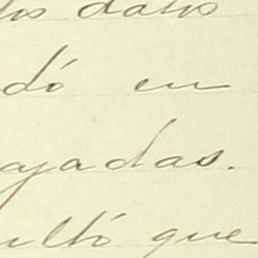 los datos
dó en
ajadas.
ultó que